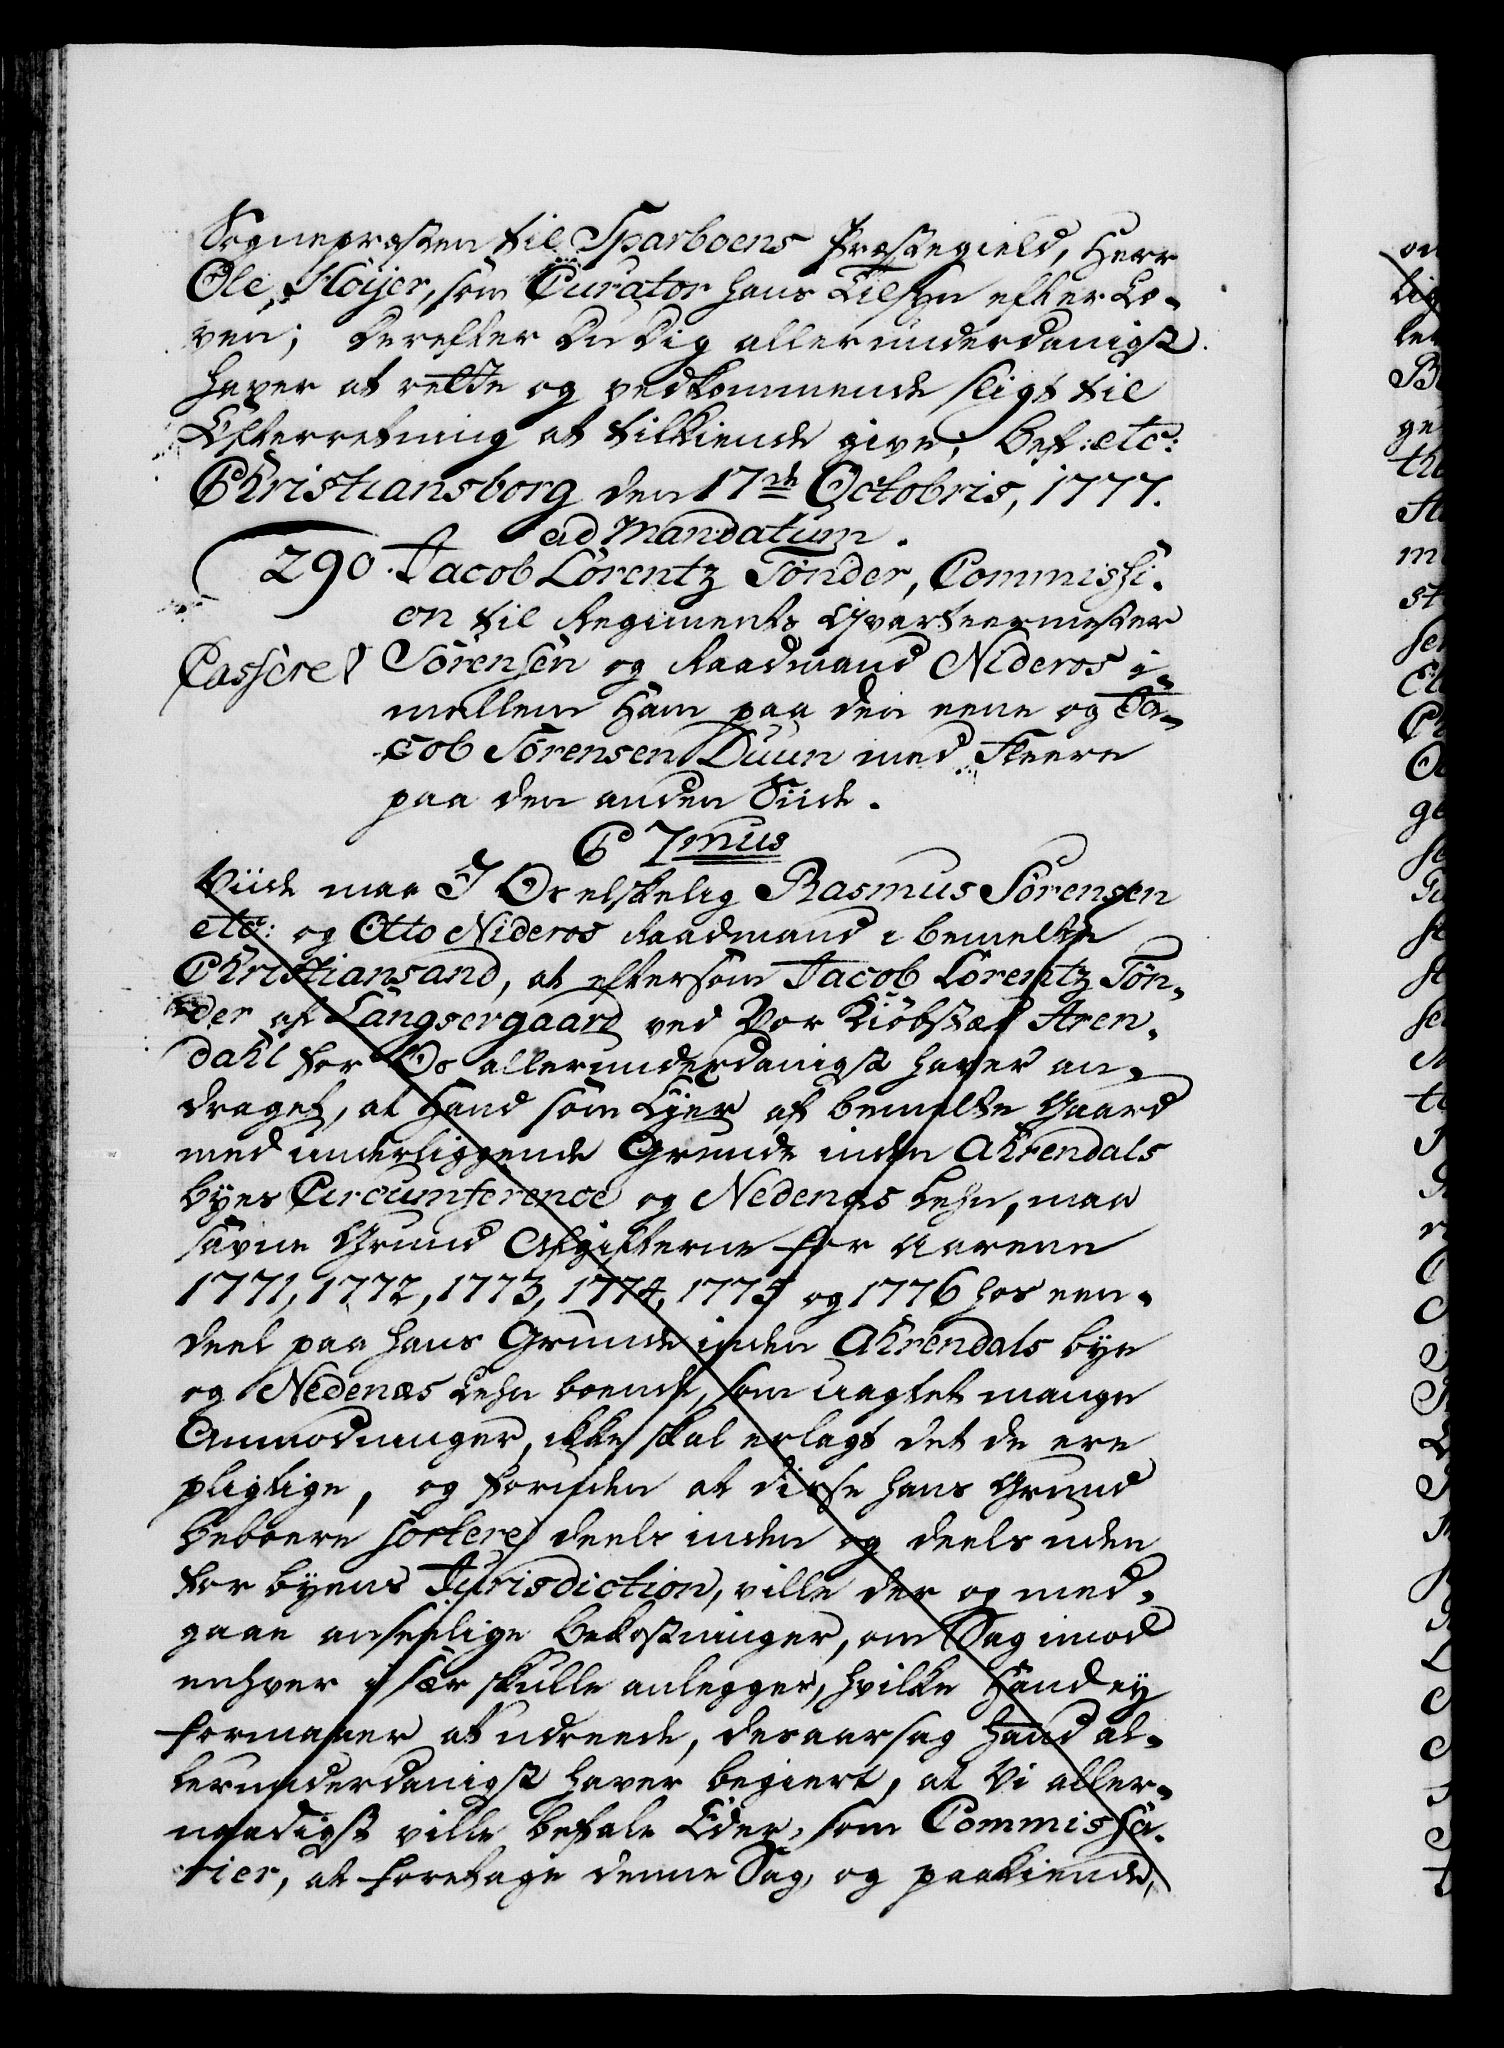 Sognepræsten til Sparboens Præstegield, Herr
Ole Höijer, som Curator hans Tilsyn efter Lo-
ven; Derefter Du Dig allerunderdanigst
haver at rette og vedkommende sligt til
Efterretning at tilkiende give; Bef: etc:
Christiansborg den 17de Octobris, 1777.
ad Mandatum.
290. Jacob Lorentz Tönder, Commissi-
on til Regiments Qvarteermester
Cassere Sörensen og Raadmand Nideros i-
mellem Ham paa den eene og Ja-
cob Sörensen Duun med Fleere
paa den anden Siide.
C 7mus
Viide maa I Os elskelig Rasmus Sörensen
etc: og Otto Nideros Raadmand i bemelte
Christiansand, at eftersom Jacob Lorentz Tön-
der af Langsergaard ved Vor Kiöbstæd Aren-
dahl for Os allerunderdanigst haver an-
draget, at Hand som Ejer af bemelte Gaard
med underliggende Grunde inden Ahrendals
byes Circumference og Nedenæs Lehn, maa
savne Grund Afgifterne for Aarene
1771, 1772, 1773, 1774, 1775 og 1776 hos een-
deel paa hans Grunde inden Ahrendals bye
og Nedenæs Lehn boende, som uagtet mange
Anmodninger, ikke skal erlagt det de ere
pligtige, og forinden at disse hans Grund
Beboere sortere deels inden og deels uden
for byens Jurisdiction, ville der og med-
gaae anseelige Bekostninger, om Sag imod
enhver i sær skulle anlegges, hvilke Hand ey
formaaer at udreede, desaarsag Hand al-
lerunderdanigst haver begiert, at Vi aller-
naadigst ville befale Eder, som Commissa-
rier, at foretage denne Sag, og paakiende,